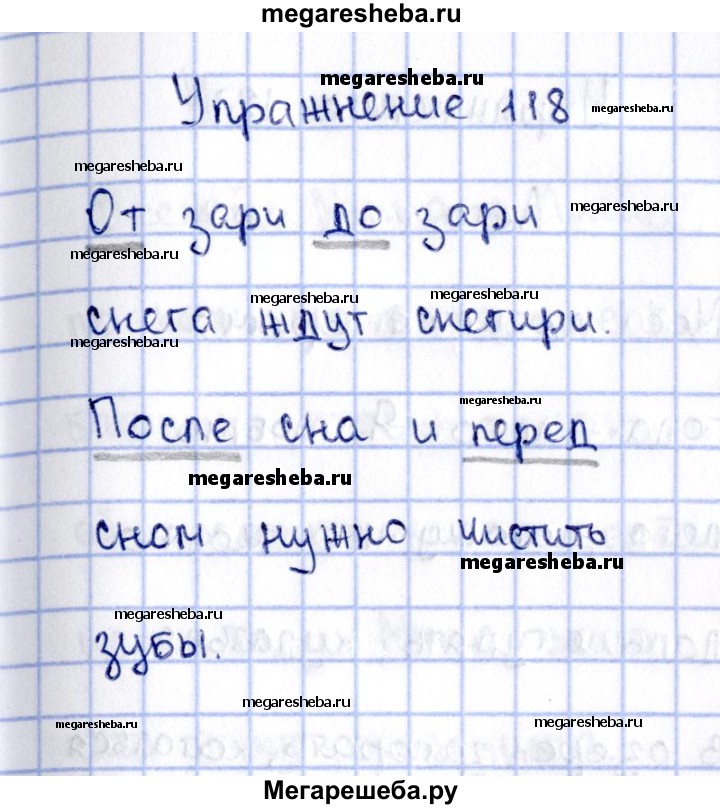 megaresheba.ru
megaresheba.ru
Упражнение 118
megaresheba.ru
megaresheba.ru
megaresheba.ru
От зари до зари
megaresheba.ru
megaresheba.ru
megaresheba.ru
снега ждут снегири.
megaresheba.ru
megaresheba.ru
После сна и перед
megaresheba.ru
сном нужно чистить
megaresheba.ru
megaresheba.ru
зубы.
megaresheba.ru
megaresheba.ru
megaresheba.ru
Мегарешеба.ру